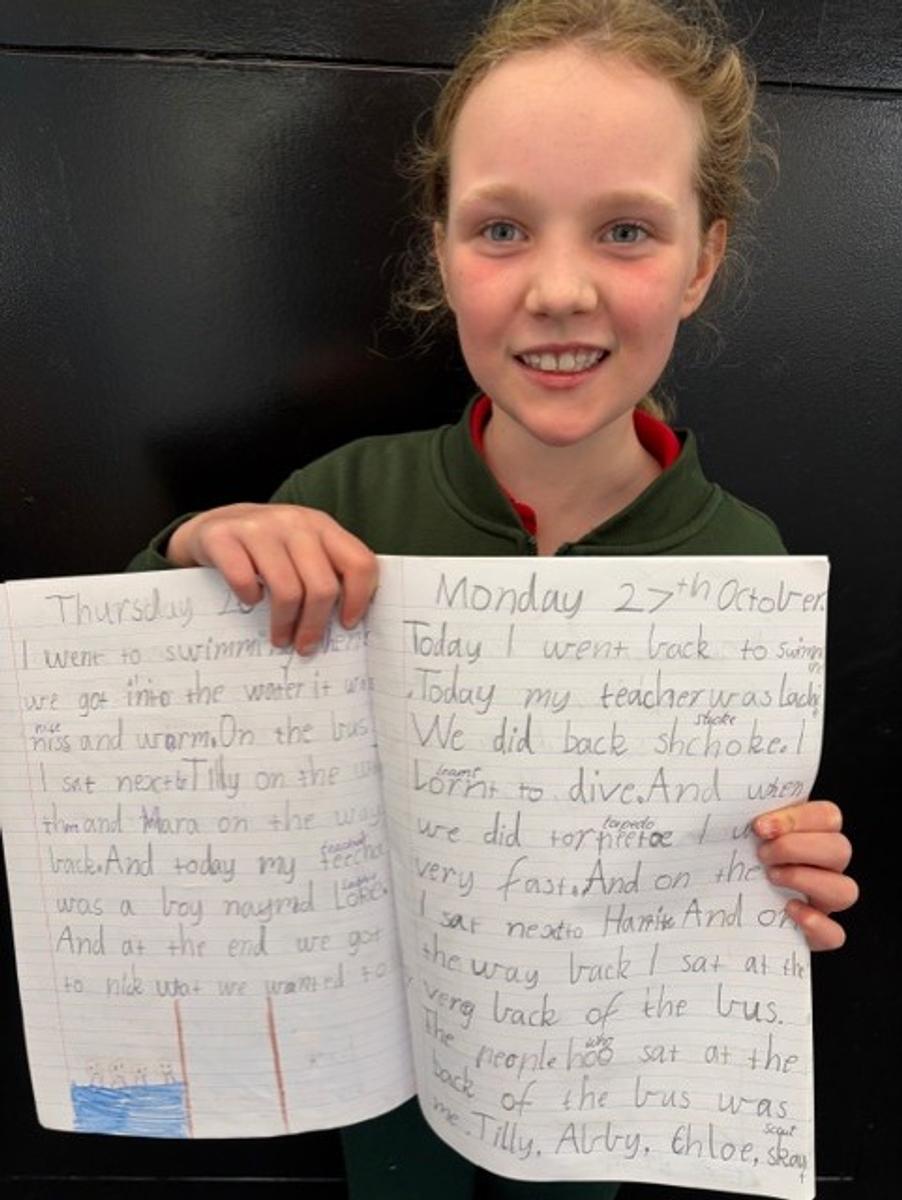 Thursday
I went to swimming
we got into the water it was
nice
niss and warm. On the bus
I sat next to Tilly on the
and Mara on the way
back. And today my feecher
was a boy naymd
And at the end we got
to pick wat we wanted to
Monday 27th October.
Today I went back to
Today my teacher was
stroke
We did back shchoke. I
learnt
Lornt to dive. And when
torpedo
we did I
very fast. And on the
I sat next to And on
the way back I sat at the
very back of the bus.
who
The people hoo sat at the
back of the bus was
me, Tilly, Abby, Chloe,